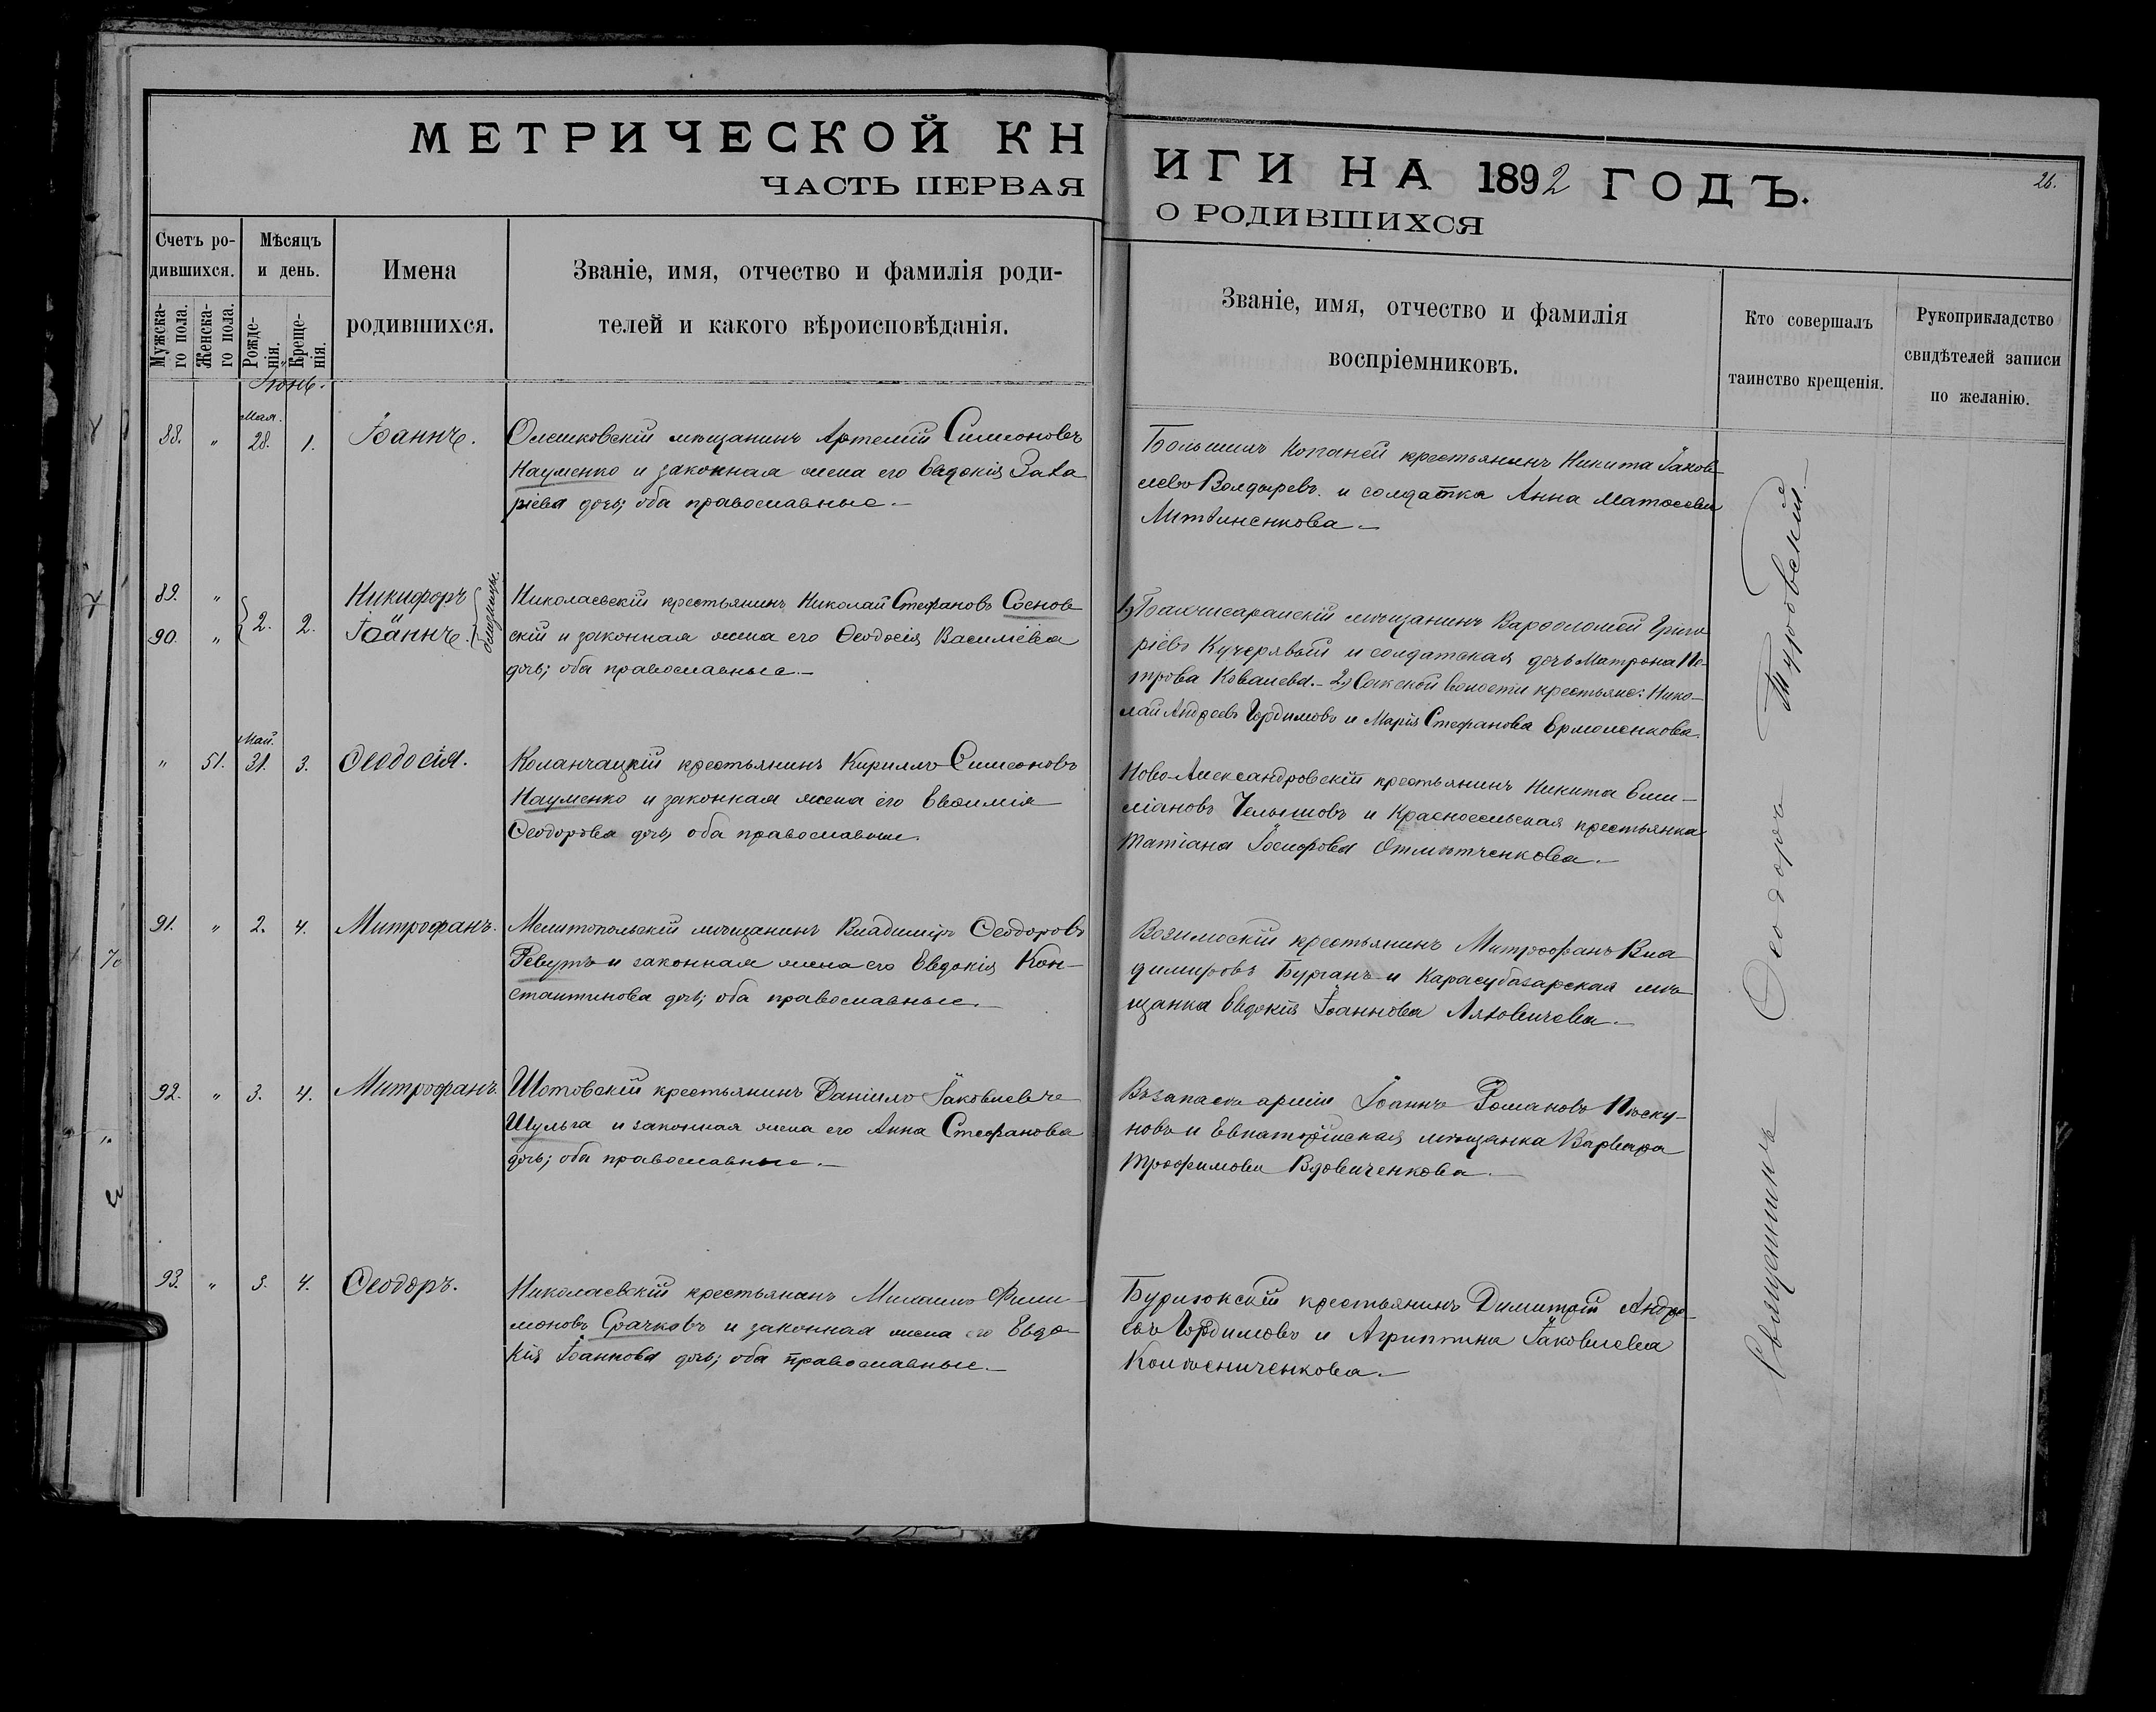 МЕТРИЧЕСКОЙ КНИГИ НА 1892 ГОДЪ.
26.
ЧАСТЬ ПЕРВАЯ О РОДИВШИХСЯ
Счетъ ро-
дившихся.
Мужска-
го пола.
Женска-
го пола.
Мѣсяцъ
и день.
Рожде-
нія.
Креще-
нія.
Имена
родившихся.
Званіе, имя, отчество и фамилія роди-
телей и какого вѣроисповѣданія.
Званіе, имя, отчество и фамилія
воспріемниковъ.
Кто совершалъ
таинство крещенія.
Рукоприкладство
свидѣтелей записи
по желанію.
Іюнь.
Мая.
88. " 28. 1. Іоаннъ.
Олешковскій мѣщанинъ Артемій Симеоновъ
Науменко и законная жена его Евдокія Заха
ріева дочь; оба православные.
Большихъ Копаней крестьянинъ Никита Іаков
левъ Волдыревъ и солдатка Анна Матѳеева
Литвиненкова
89. " Никифоръ
90. " 2. 2. Іоаннъ. близнецы.
Николаевскій крестьянинъ Николай Стефановъ Соснов
скій и законная жена его Ѳеодосія Василіева
дочь; оба православные.
1) Бахчисарайскій мѣщанинъ Варѳоломей Григо
ріевъ Кучерявый и солдатская дочь Матрона Пе-
трова Ковалева. 2) Сакской волости крестьяне: Нико-
лай Андреевъ Гордимовъ и Марія Стефанова Ермоленкова.
Май.
" 51. 31. 3. Ѳеодосія.
Коланчацкій крестьянинъ Кириллъ Симеоновъ
Науменко и законная жена его Евѳимія
Ѳеодорова дочь, оба православные.
Ново-Александровскій крестьянинъ Никита Еми-
ліановъ Челышовъ и Красносельская крестьянка
Татіана Іосифова
91. " 2. 4. Митрофанъ.
Мелитопольскій мѣщанинъ Владиміръ Ѳеодоровъ
Ревутъ и законная жена его Евдокія Кон-
стантинова дочь; оба православные.
крестьянинъ Митрофанъ Вла
димировъ Бурганъ и Карасубазарская мѣ
щанка Евдокія Іоаннова Ляховичева.
92. " 3. 4. Митрофанъ.
Шотовскій крестьянинъ Даніилъ Іаковлевъ
Шульга и законная жена его Анна Стефанова
дочь; оба православные.
Въ запасѣ арміи Іоаннъ Романовъ Пѣску-
новъ и Евпаторійская мѣщанка Варвара
Трофимова Вдовиченкова.
93. " 3. 4. Ѳеодоръ.
Николаевскій крестьянинъ Михаилъ Фили-
моновъ Срачковъ и законная жена его Евдо-
кія Іоаннова дочь; оба православные.
крестьянинъ Димитрій Андре-
евъ Гордимовъ и Агриппина Іаковлева
Священникъ Ѳеодоръ Туровскій